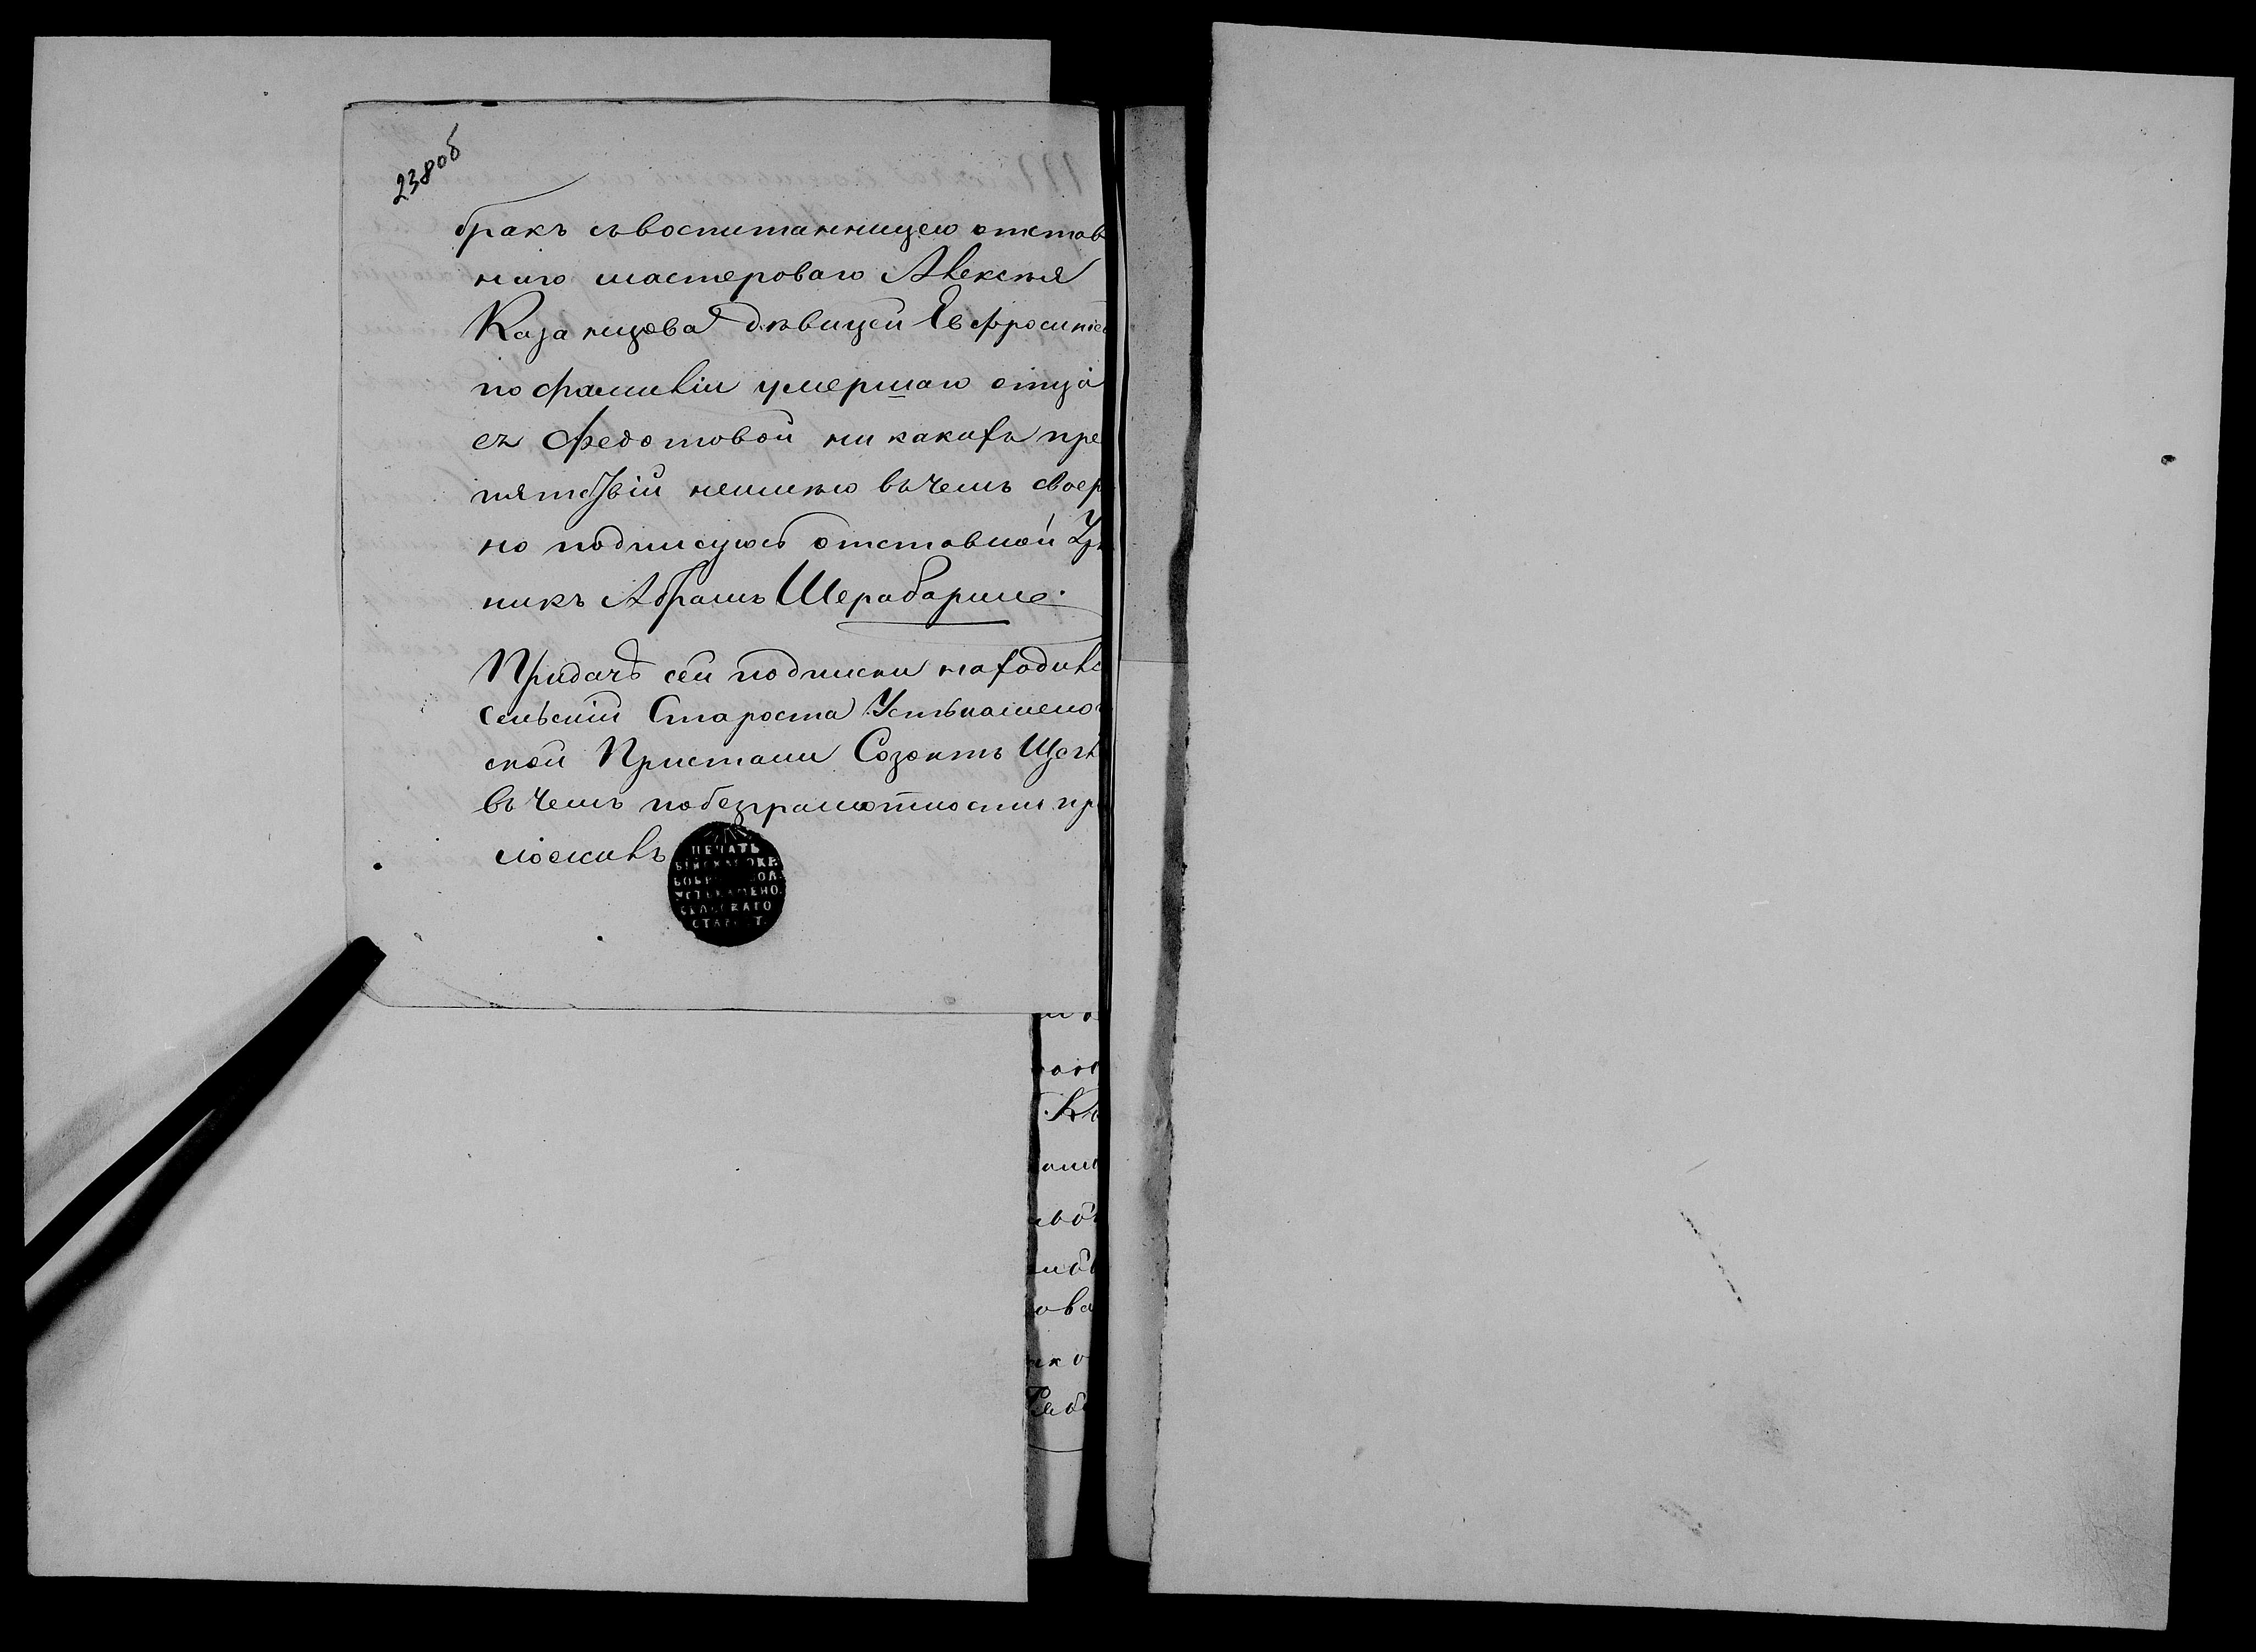 238об
бракъ съ воспитанницею отстав
наго мастероваго Алексѣя
Казанцова дѣвицей Евфросиніе
по фамиліи умершаго отца
ея Федотовой ни какихъ пре
пятствій неимѣю въ чемъ своер
но подписуюсь отставной Ур
никъ Абрамъ
Придачѣ сей подписки находилс
Сельскій Староста Устькамено
ской Пристани Созонтъ
въ чемъ по безграмотности пр
ложилъ
ПЕЧАТЬ
БІЙСКАГО ОКР.
БОБР ВОЛ.
УСТЬКАМЕНО.
СЕЛЬСКАГО
СТАРОСТ.